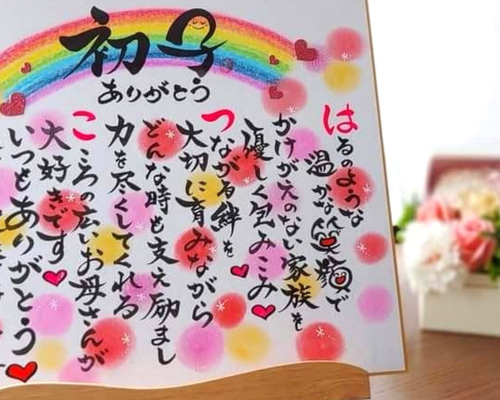 初子
ありがとう
はるのような
温かな笑顔で
かけがえのない家族を
優しく包みこみ
つながる絆を
大切に育みながら
どんな時も支え励まし
力を尽くしてくれる
こころの広いお母さんが
大好きです
いつもありがとう